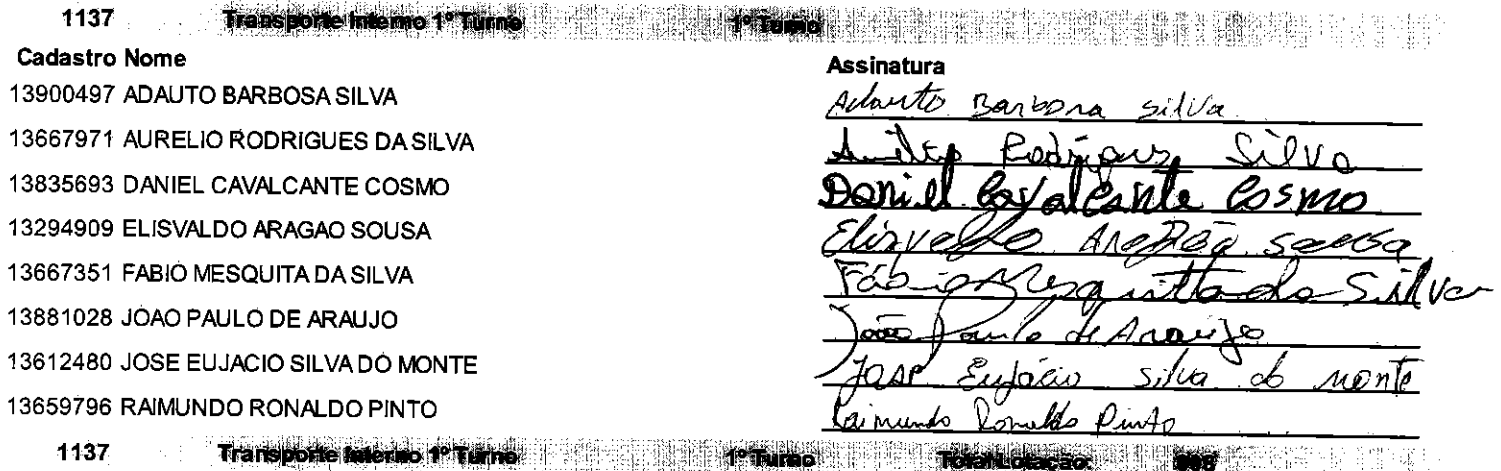 1137 Transporte Interno 1º Turno 1º Turno
Cadastro Nome Assinatura
13900497 ADAUTO BARBOSA SILVA Adauto Barbosa silva
13667971 AURELIO RODRIGUES DA SILVA Rodrigues Silva
13835693 DANIEL CAVALCANTE COSMO Daniel Cavalcante Cosmo
13294909 ELISVALDO ARAGAO SOUSA Elisvaldo Aragão Sousa
13667351 FABIO MESQUITA DA SILVA Fábio Mesquita da Silva
13881028 JOAO PAULO DE ARAUJO João Paulo de Araujo
13612480 JOSE EUJACIO SILVA DO MONTE José Eujácio silva do monte
13659796 RAIMUNDO RONALDO PINTO Raimundo Ronaldo Pinto
1137 Transporte Interno 1º Turno 1º Turno Total Lotação: